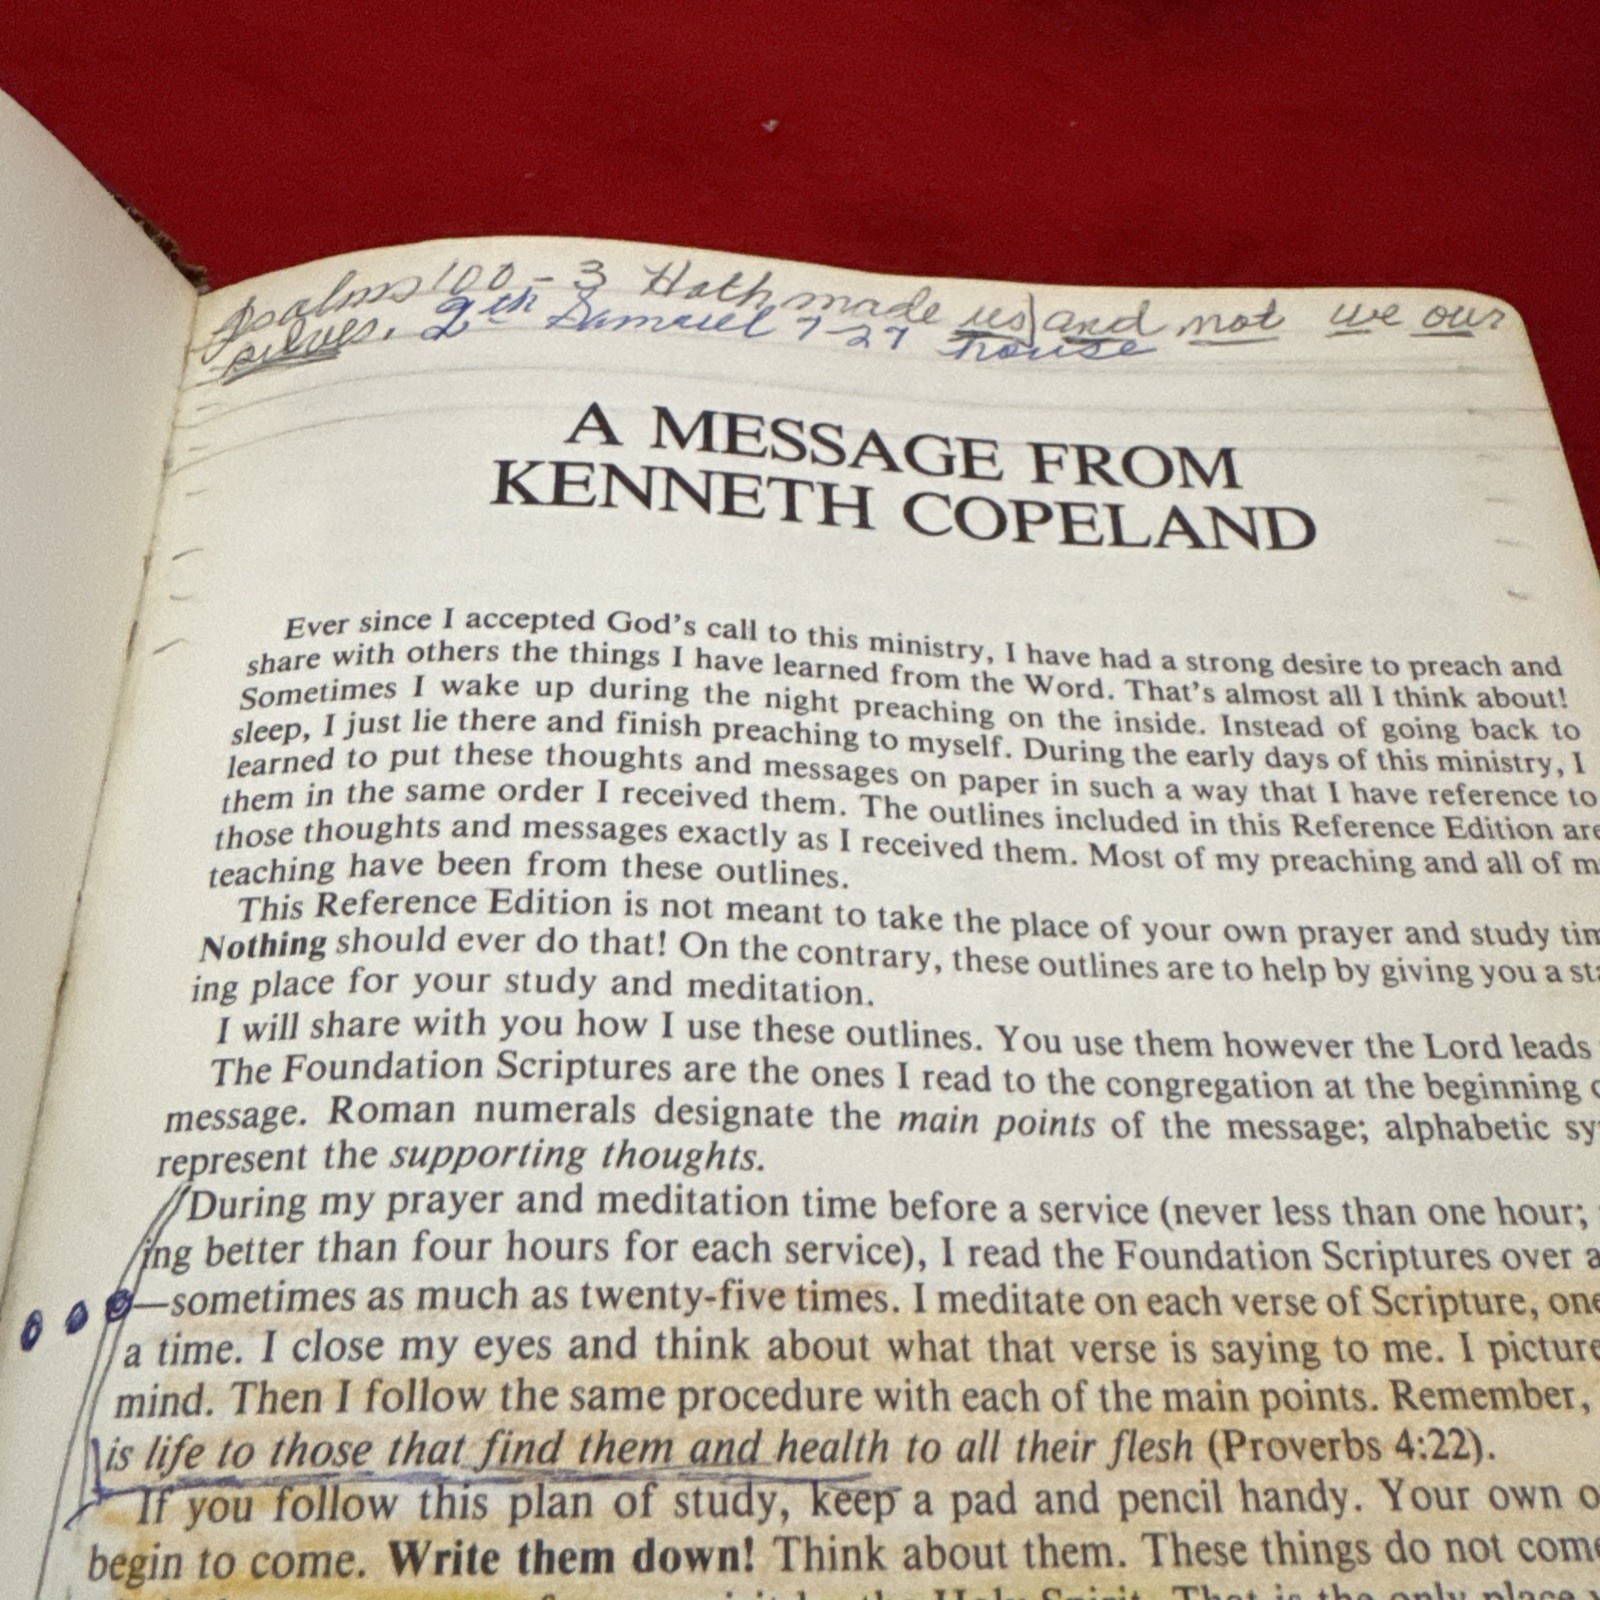 Psalms 100-3 Hath made us) and not we our
selves. 2th Samuel 7-27 house
A MESSAGE FROM
KENNETH COPELAND
Ever since I accepted God's call to this ministry, I have had a strong desire to preach and
share with others the things I have learned from the Word. That's almost all I think about!
Sometimes I wake up during the night preaching on the inside. Instead of going back to
sleep, I just lie there and finish preaching to myself. During the early days of this ministry, I
learned to put these thoughts and messages on paper in such a way that I have reference to
them in the same order I received them. The outlines included in this Reference Edition are
those thoughts and messages exactly as I received them. Most of my preaching and all of m
teaching have been from these outlines.
This Reference Edition is not meant to take the place of your own prayer and study tim
Nothing should ever do that! On the contrary, these outlines are to help by giving you a sta
ing place for your study and meditation.
I will share with you how I use these outlines. You use them however the Lord leads
The Foundation Scriptures are the ones I read to the congregation at the beginning o
message. Roman numerals designate the main points of the message; alphabetic sy
represent the supporting thoughts.
During my prayer and meditation time before a service (never less than one hour;
ing better than four hours for each service), I read the Foundation Scriptures over a
—sometimes as much as twenty-five times. I meditate on each verse of Scripture, one
a time. I close my eyes and think about what that verse is saying to me. I picture
mind. Then I follow the same procedure with each of the main points. Remember,
is life to those that find them and health to all their flesh (Proverbs 4:22).
If you follow this plan of study, keep a pad and pencil handy. Your own o
begin to come. Write them down! Think about them. These things do not come
the Holy Spirit. That is the only place